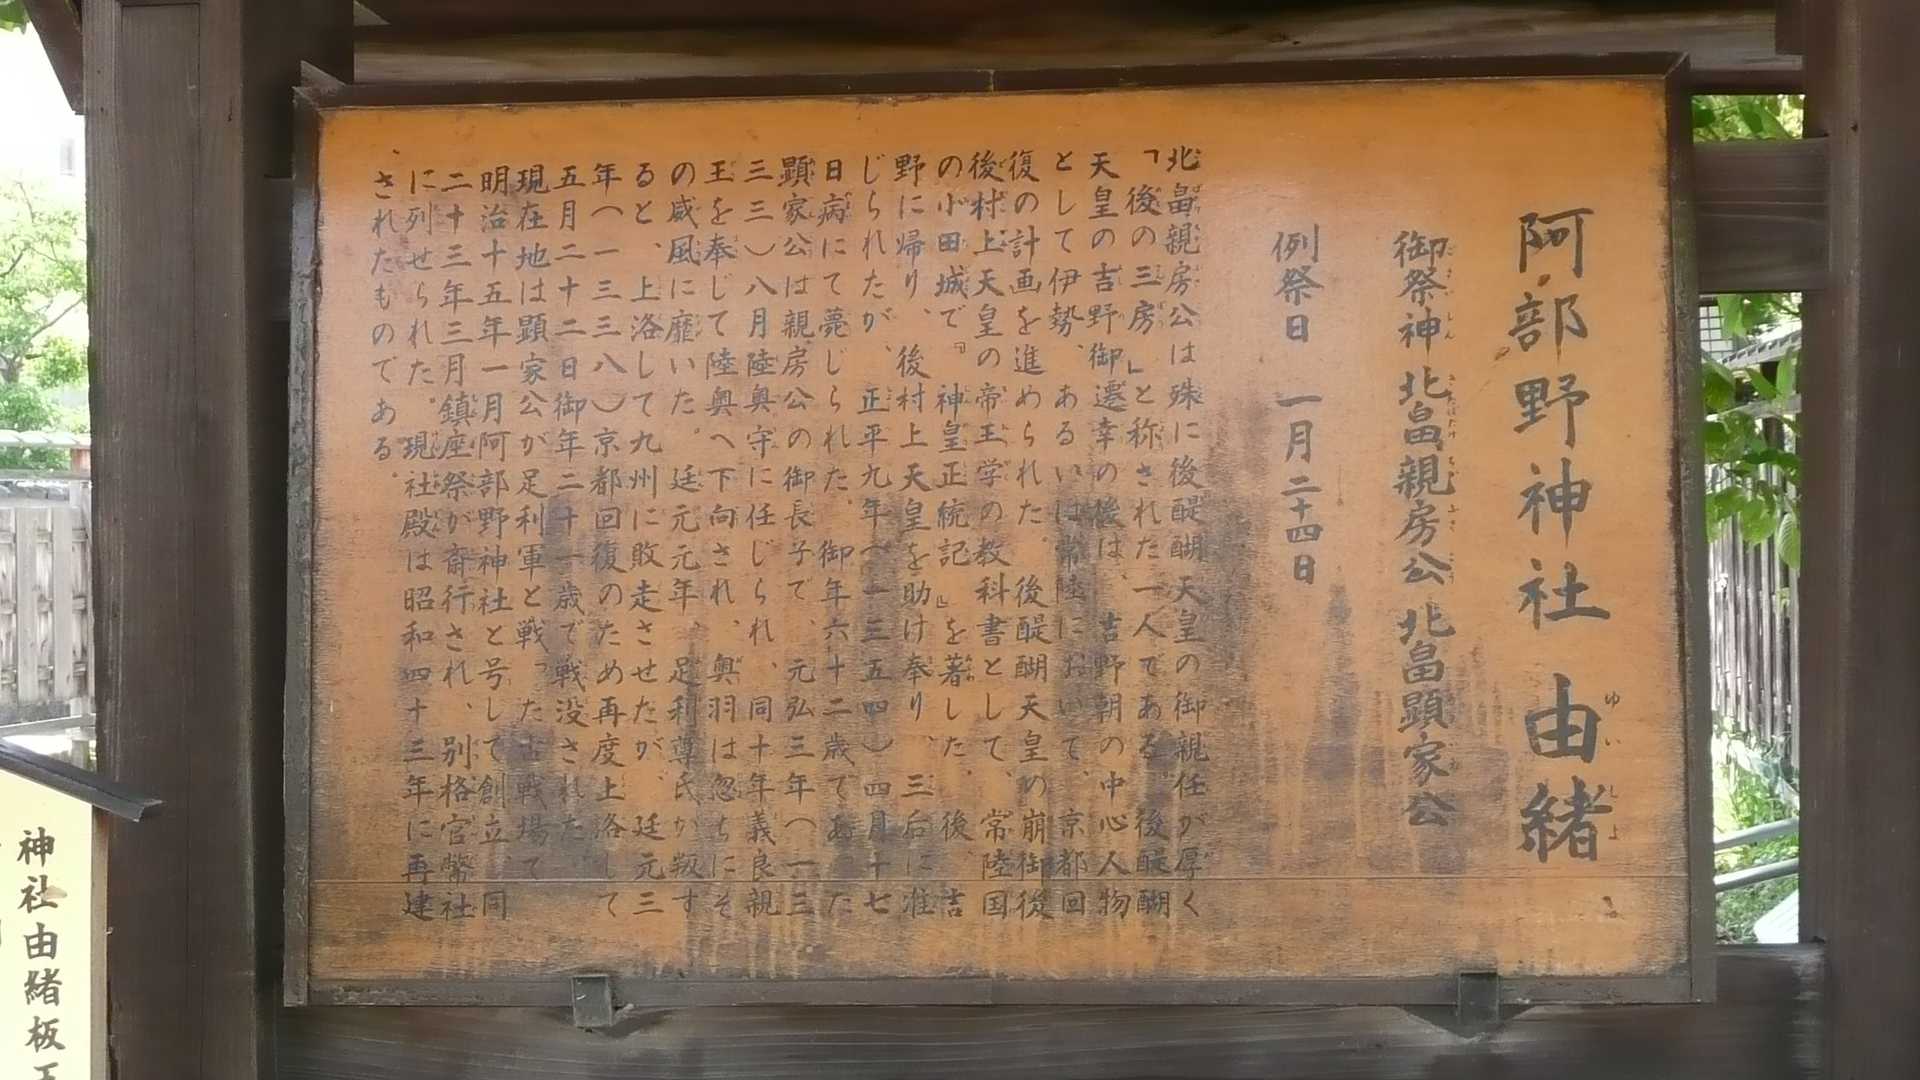 阿部野神社 由緒
御祭神 北畠親房公 北畠顕家公
例祭日 一月二十四日
北畠親房公は殊に後醍醐天皇の御親任が厚く
「後の三房」と称された一人である。後醍醐
天皇の吉野御遷幸の後は、吉野朝の中心人物
として伊勢、あるいは常陸において、京都回
復の計画を進められた。後醍醐天皇の崩御後
後村上天皇の帝王学の教科書として、常陸国
の小田城で『神皇正統記』を著した。後、吉
野に帰り、後村上天皇を助け奉り、三后に准
じられたが、正平九年(一三五四)四月十七
日病にて薨じられた。御年六十二歳であった
顕家公は親房公の御長子で、元弘三年(一三
三三)八月陸奥守に任じられ、同十年義良親
王を奉じて陸奥へ下向され、奥羽は忽ちにそ
の威風に靡いた。延元元年、足利尊氏が叛す
ると、上洛して九州に敗走させたが、延元三
年(一三三八)京都回復のため再度上洛して
五月二十二日御年二十一歳で戦没された。
現在地は顕家公が足利軍と戦った古戦場で
明治十五年一月阿部野神社と号して創立、同
二十三年三月鎮座祭が斎行され、別格官幣社
に列せられた。現社殿は昭和四十三年に再建
されたものである。
神社由緒板